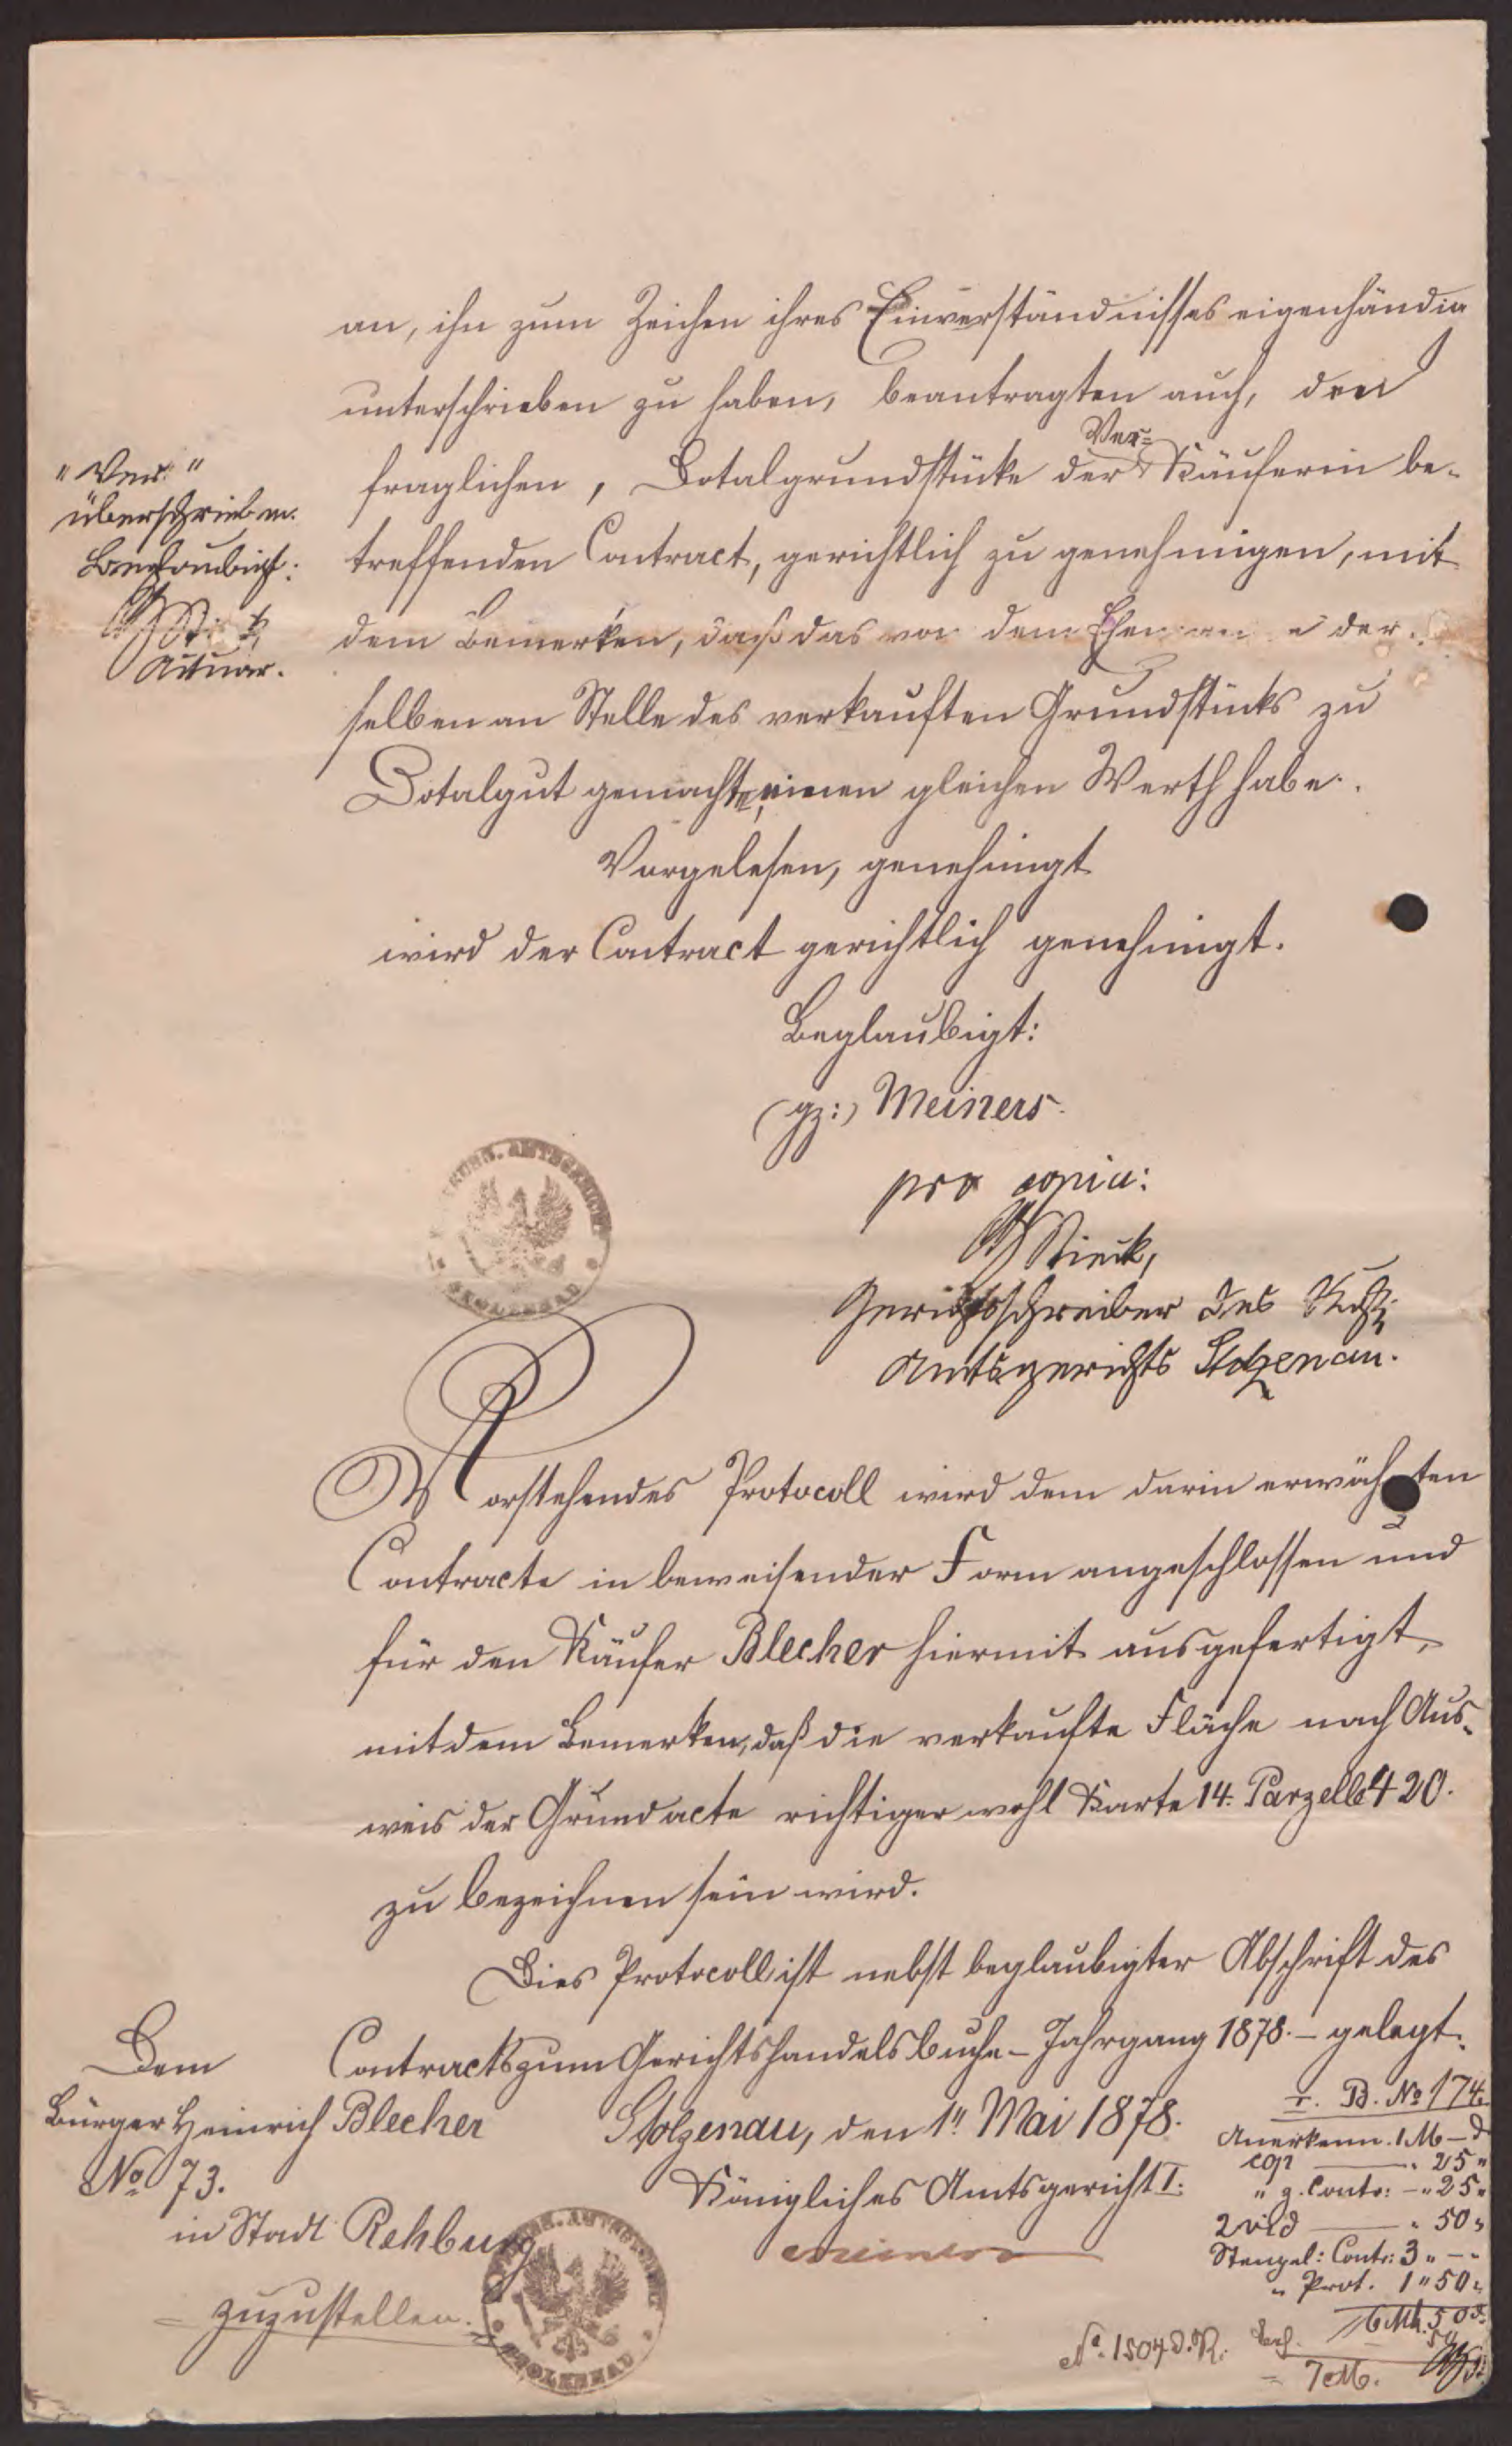 an, ihn zum Zeichen ihres Einverständnisses eigenhändig
unterschrieben zu haben, beantragten auch, den
Ver-
fraglichen, Dotalgrundstücke der Käuferin be-
treffenden Contract, gerichtlich zu genehmigen, mit
dem Bemerken, daß das von dem Ehemanne der-
selben an Stelle des verkauften Grundstücks zu
Dotalgut gemachte, einen gleichen Werth habe.
"Ver-"
überschrieben.
Beglaubigt:
Actuar.
Vorgelesen, genehmigt
wird der Contract gerichtlich genehmigt.
Beglaubigt:
(gz:) Meiners.
pro copia:
Stieck,
Gerichtsschreiber des Kgl.
Amtsgerichts Stolzenau.
AMTSGERICHT
STOLZENAU
Vorstehendes Protocoll wird dem darin erwähnten
Contracte in beweisender Form angeschlossen und
für den Käufer Blecher hiermit ausgefertigt,
mit dem Bemerken, daß die verkaufte Fläche nach Aus-
weis der Grundacte richtiger wohl Karte 14. Parzelle 420.
zu bezeichnen sein wird.
Dies Protocoll ist nebst beglaubigter Abschrift des
Contracts zum Gerichtshandelsbuche - Jahrgang 1878. - gelegt.
Stolzenau, den 1" Mai 1878.
Königliches Amtsgericht I.
Meiners
Dem
Bürger Heinrich Blecher
No 73.
in Stadt Rehburg
zuzustellen.
AMTSGERICHT
STOLZENAU
B. No 174.
Anerkenn. 1 M - d
cop " 25 "
" g. Contr: - " 25 "
2 vid " 50 "
Stempel: Contr: 3 " - "
" Prot. 1 " 50 "
6 Mk. 50 d.
50
= 7 M.
No. 1504 D.R.